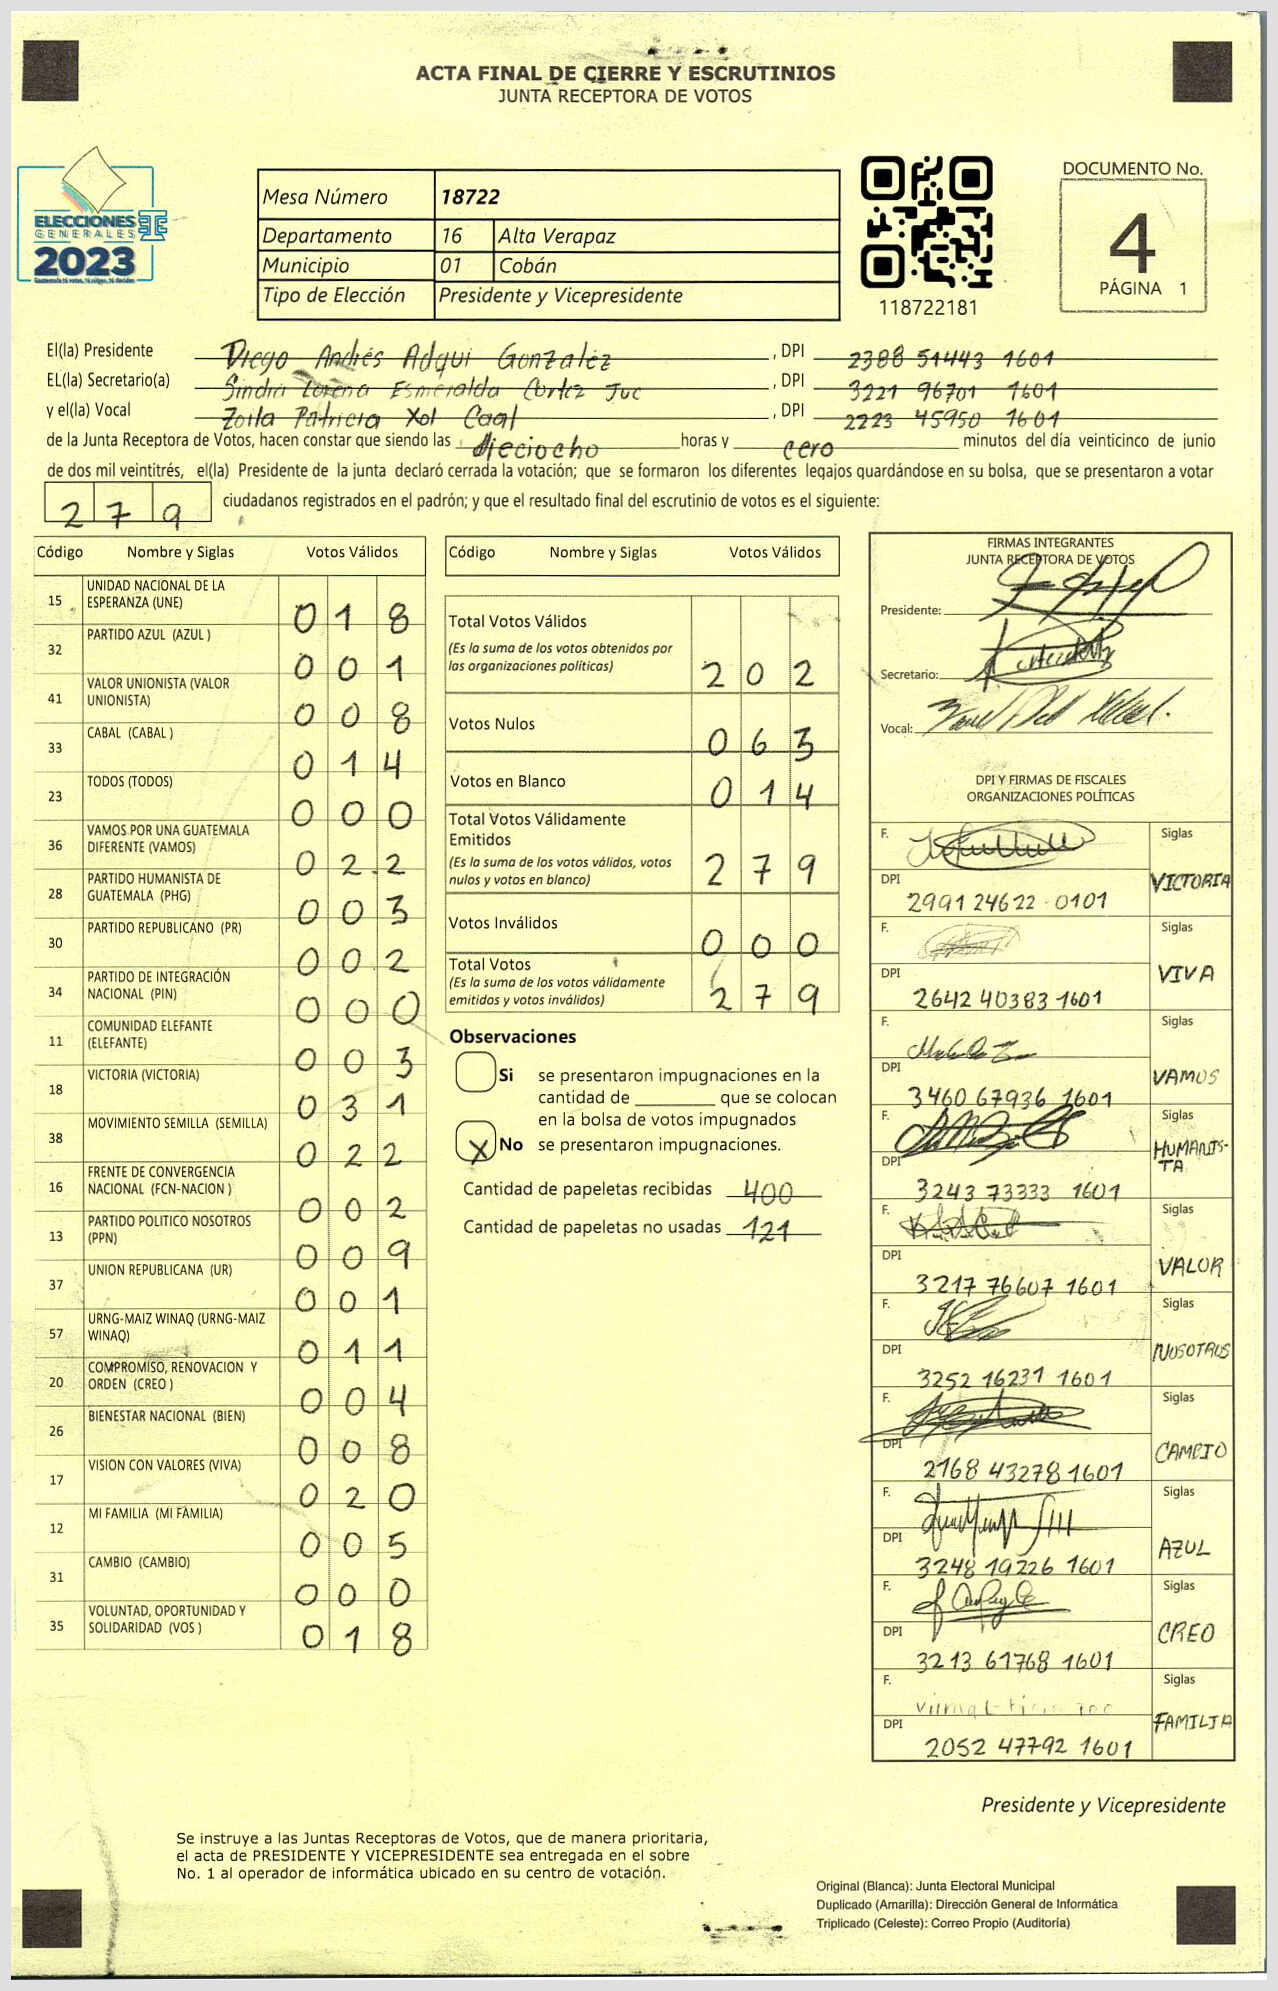 ACTA FINAL DE CIERRE Y ESCRUTINIOS
JUNTA RECEPTORA DE VOTOS
ELECCIONES
GENERALES
2023
Mesa Número 18722
Departamento 16 Alta Verapaz
Municipio 01 Cobán
Tipo de Elección Presidente y Vicepresidente
118722181
DOCUMENTO No.
4
PÁGINA 1
El(la) Presidente Diego Andrés Adqui Gonzalez , DPI 2388 51443 1601
EL(la) Secretario(a) Sindia Lorena Esmeralda Cortez Juc , DPI 3221 96701 1601
y el(la) Vocal Zoila Patricia Xol Caal , DPI 2223 45950 1601
de la Junta Receptora de Votos, hacen constar que siendo las dieciocho horas y cero minutos del día veinticinco de junio
de dos mil veintitrés, el(la) Presidente de la junta declaró cerrada la votación; que se formaron los diferentes legajos guardándose en su bolsa, que se presentaron a votar
279 ciudadanos registrados en el padrón; y que el resultado final del escrutinio de votos es el siguiente:
Código Nombre y Siglas Votos Válidos
15 UNIDAD NACIONAL DE LA ESPERANZA (UNE) 018
32 PARTIDO AZUL (AZUL ) 001
41 VALOR UNIONISTA (VALOR UNIONISTA) 008
33 CABAL (CABAL ) 014
23 TODOS (TODOS) 000
36 VAMOS POR UNA GUATEMALA DIFERENTE (VAMOS) 022
28 PARTIDO HUMANISTA DE GUATEMALA (PHG) 003
30 PARTIDO REPUBLICANO (PR) 002
34 PARTIDO DE INTEGRACIÓN NACIONAL (PIN) 000
11 COMUNIDAD ELEFANTE (ELEFANTE) 003
18 VICTORIA (VICTORIA) 031
38 MOVIMIENTO SEMILLA (SEMILLA) 022
16 FRENTE DE CONVERGENCIA NACIONAL (FCN-NACION ) 002
13 PARTIDO POLITICO NOSOTROS (PPN) 009
37 UNION REPUBLICANA (UR) 001
57 URNG-MAIZ WINAQ (URNG-MAIZ WINAQ) 011
20 COMPROMISO, RENOVACION Y ORDEN (CREO ) 004
26 BIENESTAR NACIONAL (BIEN) 008
17 VISION CON VALORES (VIVA) 020
12 MI FAMILIA (MI FAMILIA) 005
31 CAMBIO (CAMBIO) 000
35 VOLUNTAD, OPORTUNIDAD Y SOLIDARIDAD (VOS ) 018
Código Nombre y Siglas Votos Válidos
Total Votos Válidos
(Es la suma de los votos obtenidos por
las organizaciones políticas) 202
Votos Nulos 063
Votos en Blanco 014
Total Votos Válidamente
Emitidos
(Es la suma de los votos válidos, votos
nulos y votos en blanco) 279
Votos Inválidos 000
Total Votos
(Es la suma de los votos válidamente
emitidos y votos inválidos) 279
Observaciones
Si se presentaron impugnaciones en la
cantidad de ________ que se colocan
en la bolsa de votos impugnados
X No se presentaron impugnaciones.
Cantidad de papeletas recibidas 400
Cantidad de papeletas no usadas 121
FIRMAS INTEGRANTES
JUNTA RECEPTORA DE VOTOS
Presidente:
Secretario:
Vocal:
DPI Y FIRMAS DE FISCALES
ORGANIZACIONES POLÍTICAS
F. Siglas
DPI 2991 24622 0101 VICTORIA
F. Siglas
DPI 2642 40383 1601 VIVA
F. Siglas
DPI 3460 67936 1601 VAMOS
F. Siglas
DPI 3243 73333 1601 HUMANIS-
TA
F. Siglas
DPI 3217 76607 1601 VALOR
F. Siglas
DPI 3252 16231 1601 NOSOTROS
F. Siglas
DPI 2168 43278 1601 CAMBIO
F. Siglas
DPI 3248 19226 1601 AZUL
F. Siglas
DPI 3213 61768 1601 CREO
F. Siglas
DPI 2052 47792 1601 FAMILIA
Presidente y Vicepresidente
Se instruye a las Juntas Receptoras de Votos, que de manera prioritaria,
el acta de PRESIDENTE Y VICEPRESIDENTE sea entregada en el sobre
No. 1 al operador de informática ubicado en su centro de votación.
Original (Blanca): Junta Electoral Municipal
Duplicado (Amarilla): Dirección General de Informática
Triplicado (Celeste): Correo Propio (Auditoría)